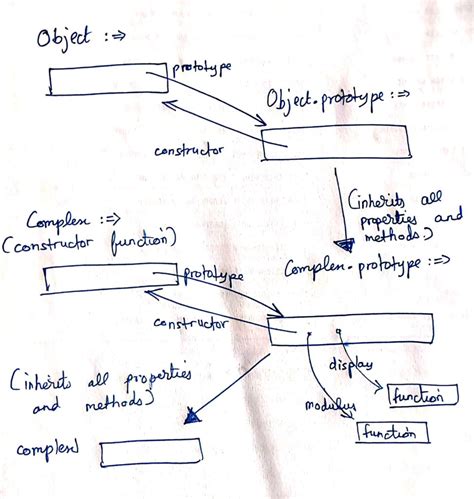 Object :⇒
prototype
Object.prototype :⇒
constructor
(inherits all
properties and
methods.)
Complex :⇒
(constructor function)
prototype
Complex.prototype :⇒
constructor
display
function
(inherits all properties
and methods)
modulus
function
complex1